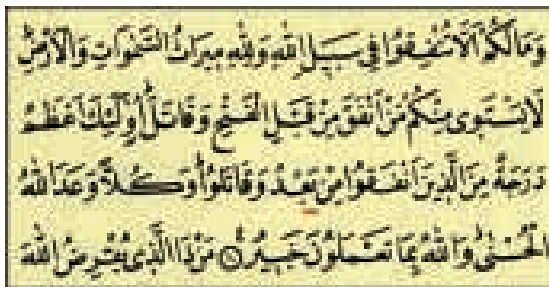 وَمَا لَكُمْ اَلَّا تُنْفِقُوا فِي سَبِيلِ اللّٰهِ وَلِلّٰهِ مِيرَاثُ السَّمٰوَاتِ وَالْاَرْضِ
لَا يَسْتَوِي مِنْكُمْ مَنْ اَنْفَقَ مِنْ قَبْلِ الْفَتْحِ وَقَاتَلَ اُولٰئِكَ اَعْظَمُ
دَرَجَةً مِنَ الَّذِينَ اَنْفَقُوا مِنْ بَعْدُ وَقَاتَلُوا وَكُلًّا وَعَدَ اللّٰهُ
الْحُسْنٰى وَاللّٰهُ بِمَا تَعْمَلُونَ خَبِيرٌ مَنْ ذَا الَّذِي يُقْرِضُ اللّٰهَ